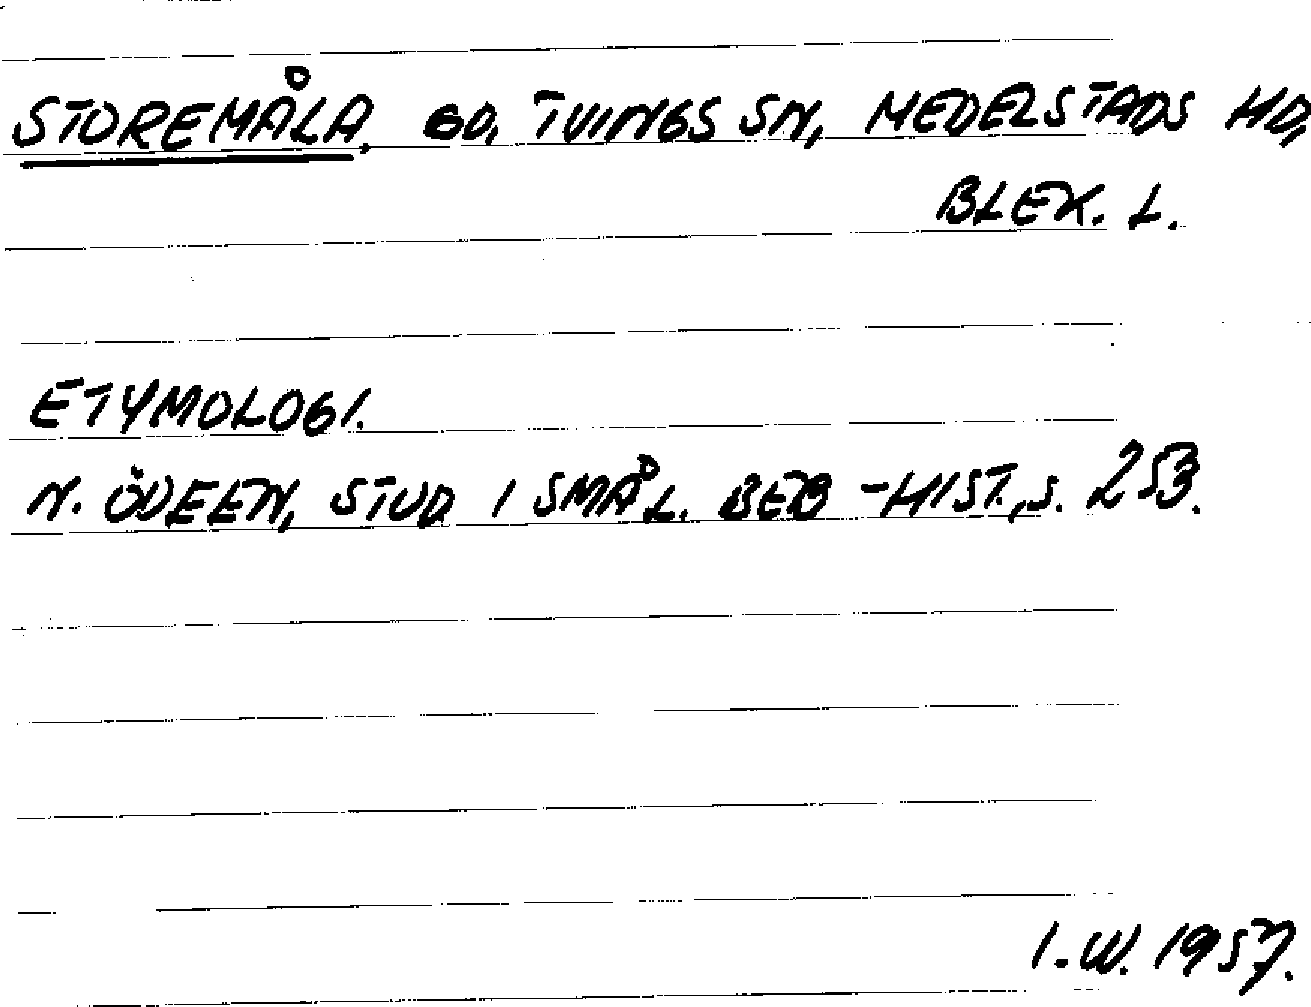 STOREMÅLA, GD, TVINGS SN, MEDELSTADS HD,
BLEK. L.
ETYMOLOGI.
N. ÖDEEN, STUD. I SMÅL. BEB-HIST., S. 253.
I.W. 1957.